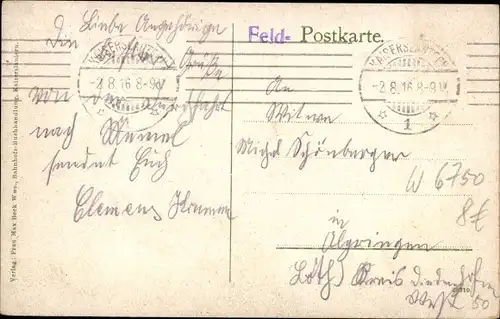 Feld- Postkarte.
Liebe Angehörige
Die
Grüße
KAISERSLAUTERN
-2.8.16.8-9V
1
KAISERSLAUTERN
-2.8.16.8-9V
Von der
nach Memel
sendet Euch
Clemens
An
Witwe
Michel Schönberger
in
Algringen
Loth) Kreis Diedenhofen
West
W 6750
8€
50
Verlag: Frau Max Beck Wwe., Bahnhofs-Buchhandlung, Kaiserslautern.